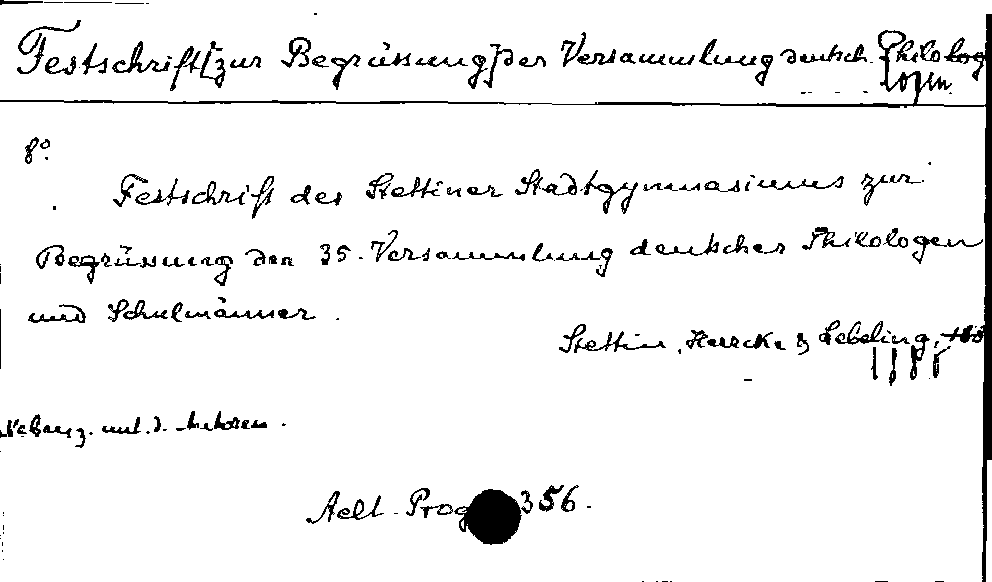 Festschrift [zur Begrüssung] der Versammlung deutsch. Philolog
logen
8°.
Festschrift des Stettiner Stadtgymnasiums zur
Begrüssung der 35. Versammlung deutscher Philologen
und Schulmänner.
Stettin, Herrcke & Lebeling, 188
1880
Nebenz. unt. d. Autoren.
Aelt. Prog 356.